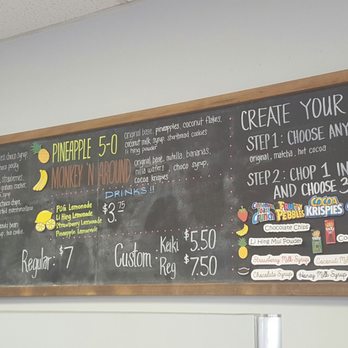 choco syrup,
choco pocky
strawberries,
PINEAPPLE 5-0
original base, pineapples, coconut flakes,
coconut milk syrup, shortbread cookies
li hing powder
MONKEY N AROUND
original base, nutella, bananas,
nilla wafers, choco syrup,
cocoa krispies
DRINKS!!
Pink Lemonade
Li Hing Lemonade
Strawberry Lemonade
Pineapple Lemonade
$3.75
Regular: $7
Custom: Keiki $5.50
Reg $7.50
CREATE YOUR
STEP 1: CHOOSE ANY
original, matcha, hot cocoa
STEP 2: CHOP 1 IN
AND CHOOSE 3
PEBBLES
COCOA
KRISPIES
Chocolate Chips
Li Hing Mui Powder
Strawberry Milk Syrup
Coconut Mil
Chocolate Syrup
Honey Milk Syrup